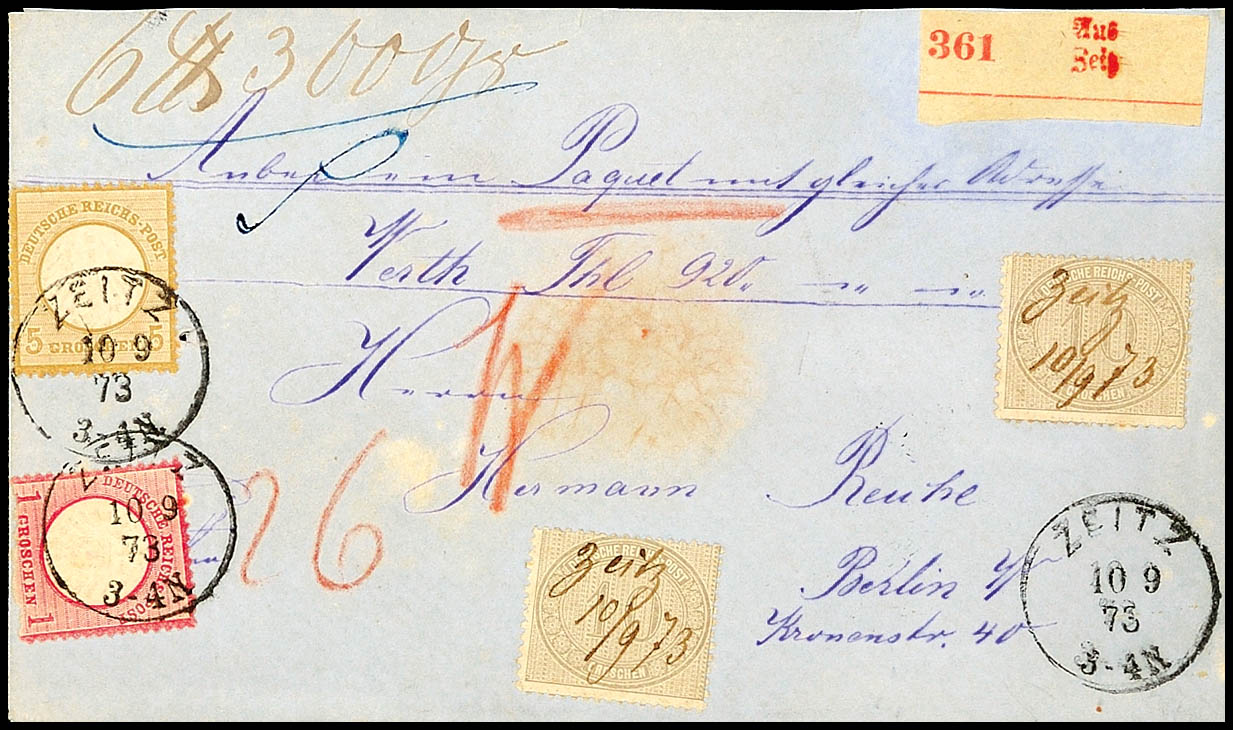 6 ℔ 300 Gr
361
Aus
Zeitz
Anbei ein Paquet mit gleicher Adresse
Werth Thl 920
Herrn
Hermann Reuhe
Berlin W
Kronenstr. 40
26
DEUTSCHE REICHS-POST
5 GROSCHEN 5
ZEITZ.
10 9
73
3-4N
DEUTSCHE REICHS-POST
1 GROSCHEN 1
ZEITZ
10 9
73
3-4N
DEUTSCHE REICHS-POST
10
GROSCHEN
Zeitz
10/9 73
DEUTSCHE REICHS-POST
10
GROSCHEN
Zeitz
10/9 73
ZEITZ
10 9
73
3-4N